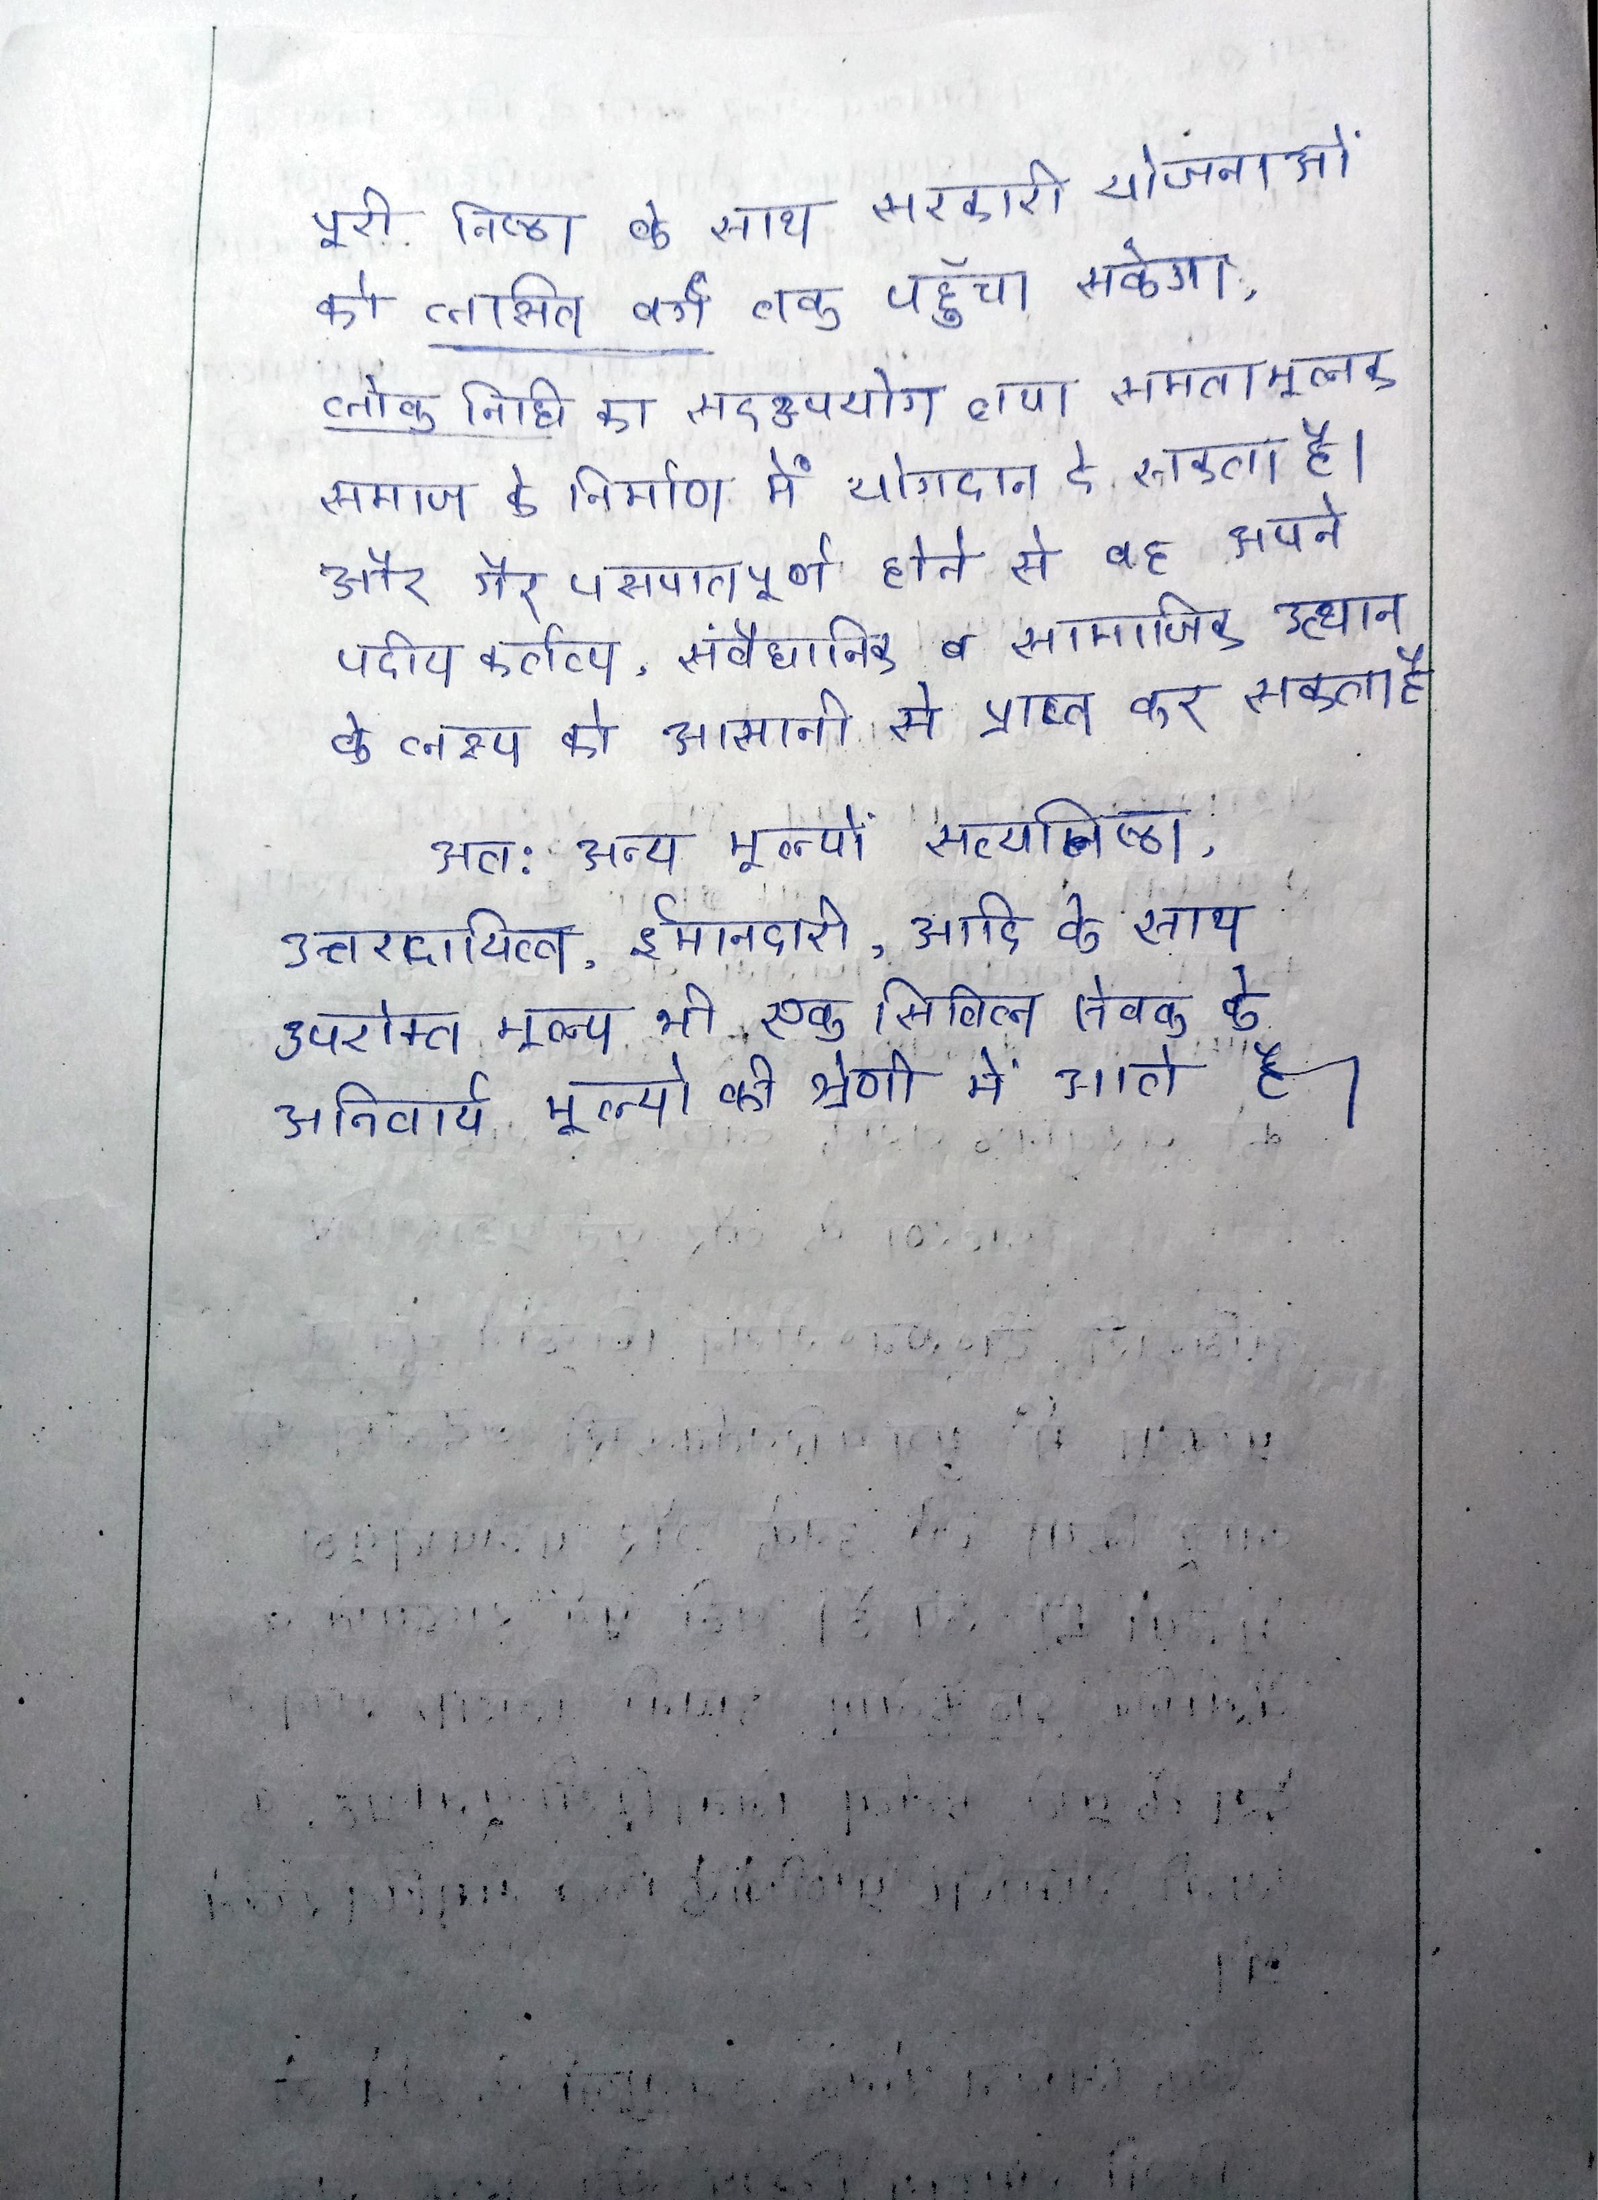 पूरी निष्ठा के साथ सरकारी योजनाओं
को लक्षित वर्ग तक पहुँचा सकेगा,
लोक निधि का सदउपयोग तथा समतामूलक
समाज के निर्माण में योगदान दे सकता है।
और गैर पक्षपातपूर्ण होने से वह अपने
पदीय कर्तव्य, संवैधानिक व सामाजिक उत्थान
के लक्ष्य को आसानी से प्राप्त कर सकता है
अतः अन्य मूल्यों सत्यनिष्ठा,
उत्तरदायित्व, ईमानदारी, आदि के साथ
उपरोक्त मूल्य भी एक सिविल सेवक के
अनिवार्य मूल्यो की श्रेणी में आते है।